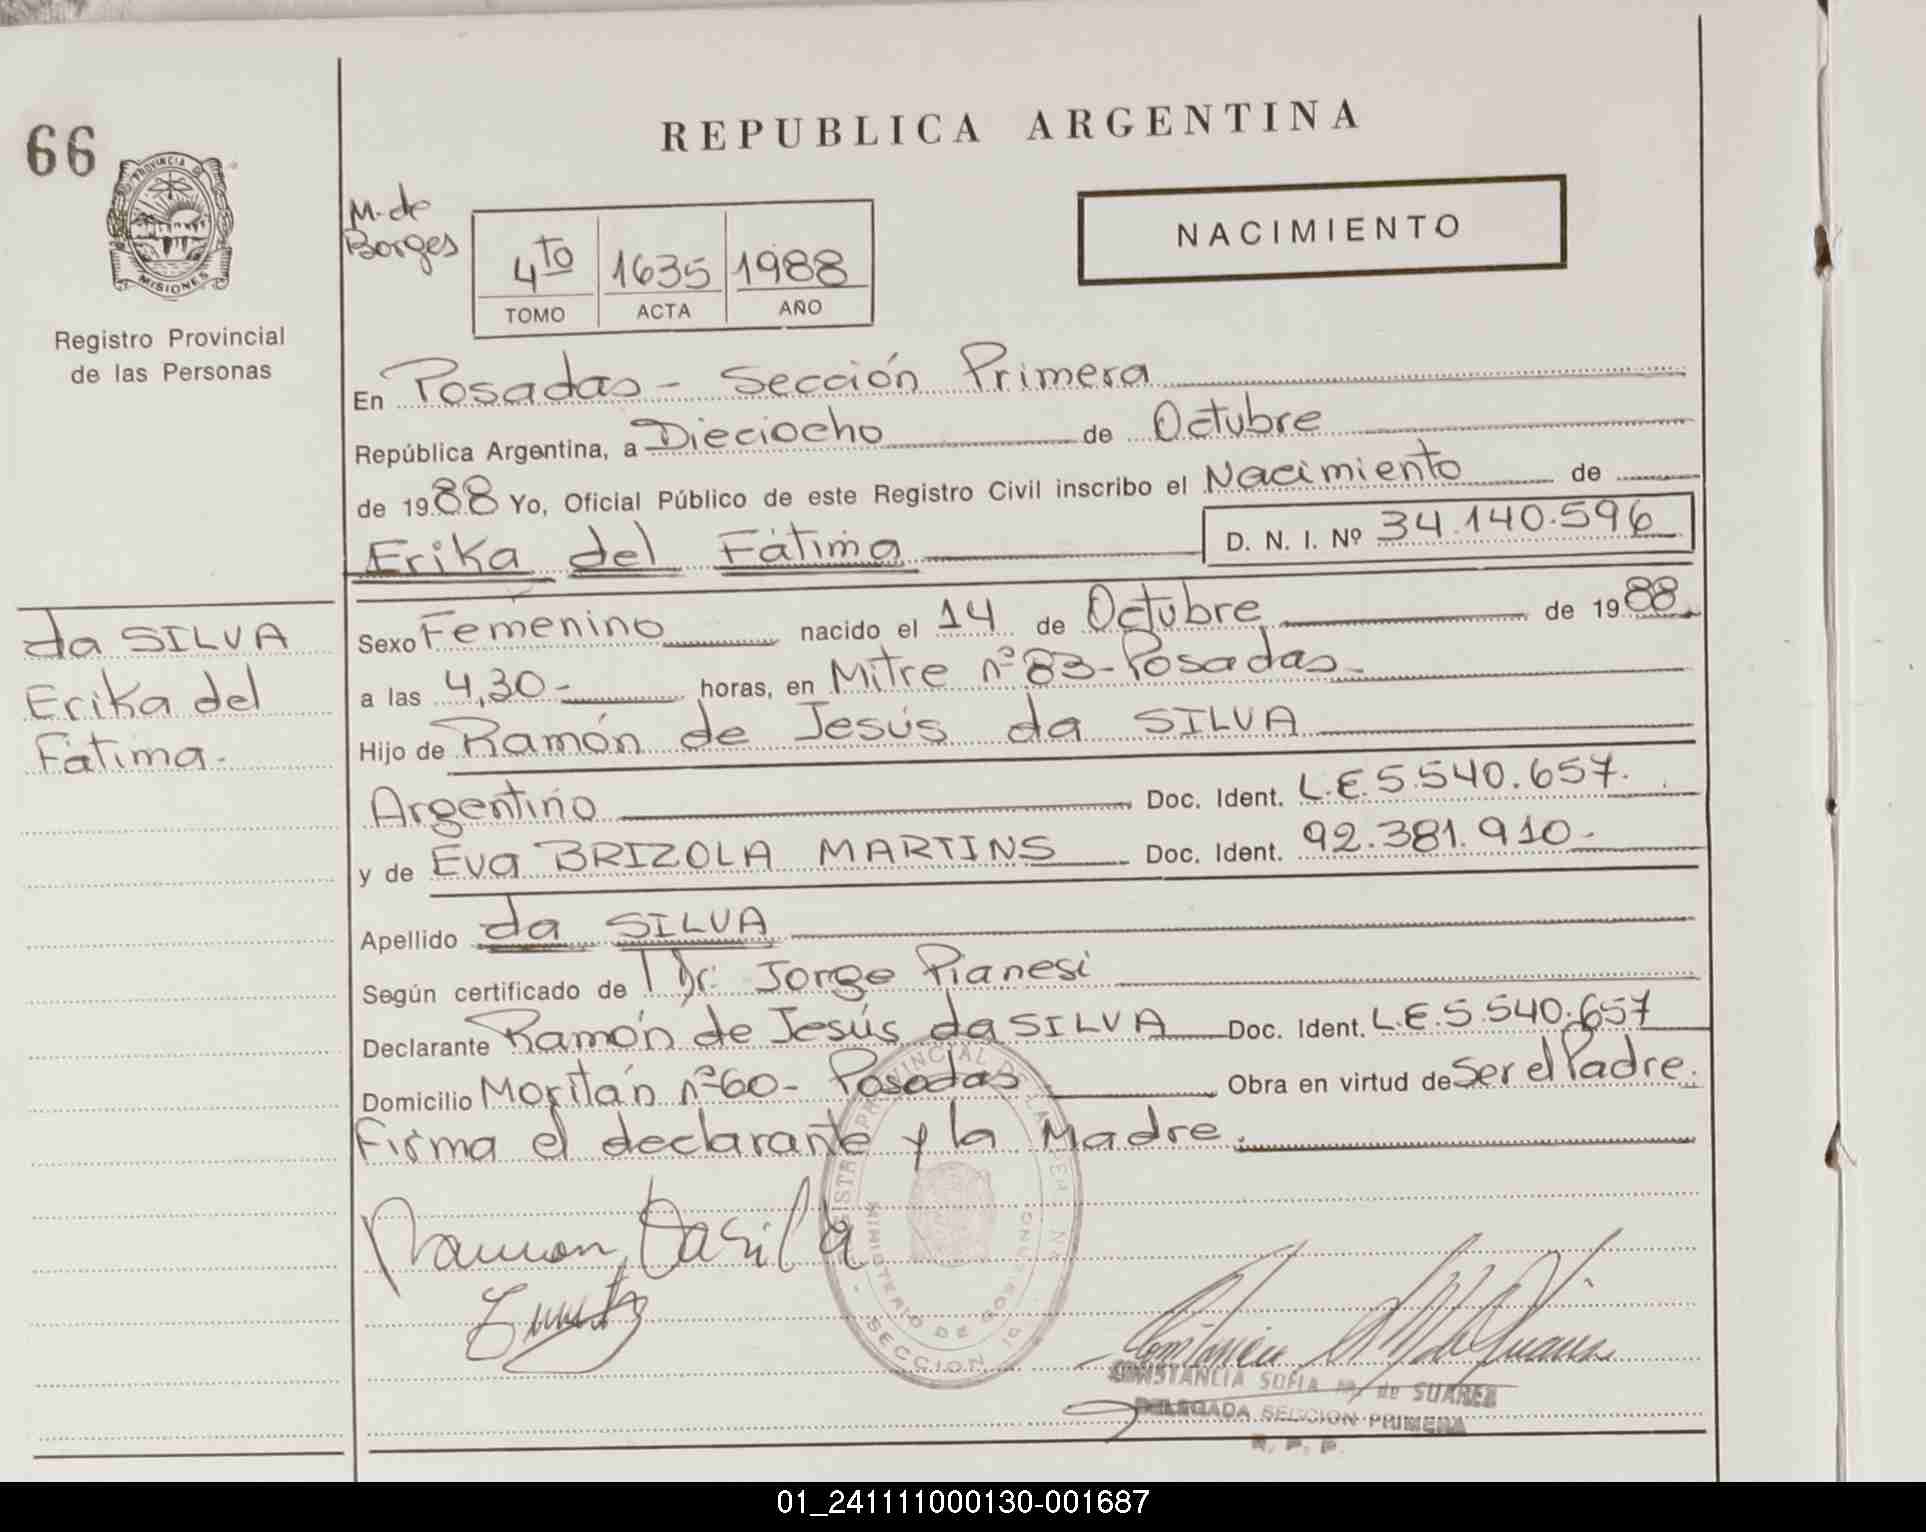 66
REPUBLICA ARGENTINA
PROVINCIA DE
MISIONES
Registro Provincial
de las Personas
M. de
Borges
4to 1635 1988
TOMO ACTA AÑO
NACIMIENTO
En Posadas - Sección Primera
República Argentina, a Dieciocho de Octubre
de 1988 Yo, Oficial Público de este Registro Civil inscribo el Nacimiento de
Erika del Fátima D. N. I. Nº 34.140.596
da SILVA
Erika del
Fátima.-
Sexo Femenino nacido el 14 de Octubre de 1988.
a las 4,30- horas, en Mitre nº 83 - Posadas-
Hijo de Ramón de Jesús da SILVA
Argentino Doc. Ident. L.E. 5.540.657.
y de Eva BRIZOLA MARTINS Doc. Ident. 92.381.910-
Apellido da SILVA
Según certificado de Dr. Jorge Pianesi
Declarante Ramón de Jesús da SILVA Doc. Ident. L.E. 5.540.657
Domicilio nº 60 - Posadas Obra en virtud de Ser el Padre.
Firma el declarante y la Madre.
Ramon Dasilva
REGISTRO PROVINCIAL DE LAS PER
MINISTERIO DE GOBIERNO
SECCION 1a
CONSTANCIA SOFIA M. de SUAREZ
DELEGADA SECCION PRIMERA
R. P. P.
01_241111000130-001687